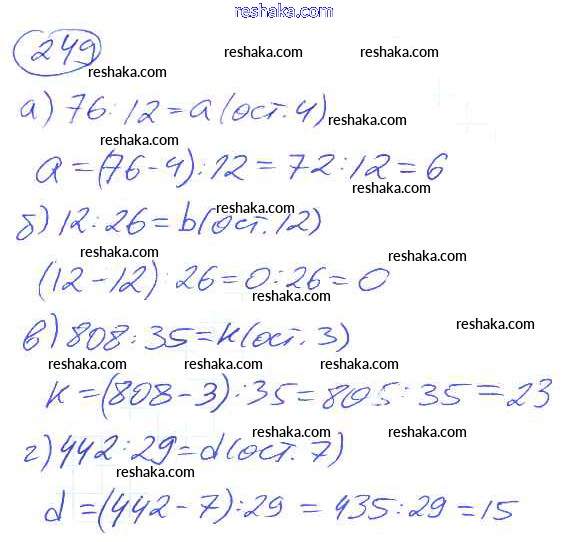 reshaka.com
249
reshaka.com reshaka.com
reshaka.com
а) 76:12=a(ост.4)
reshaka.com
reshaka.com
a=(76-4):12=72:12=6
reshaka.com
reshaka.com
б) 12:26=b(ост.12)
reshaka.com
reshaka.com
(12-12) 26=0:26=0
reshaka.com
reshaka.com
в) 808:35=k(ост.3)
reshaka.com reshaka.com reshaka.com
k=(808-3):35=805:35=23
reshaka.com reshaka.com
г) 442:29=d(ост.7)
reshaka.com
d=(442-7):29=435:29=15